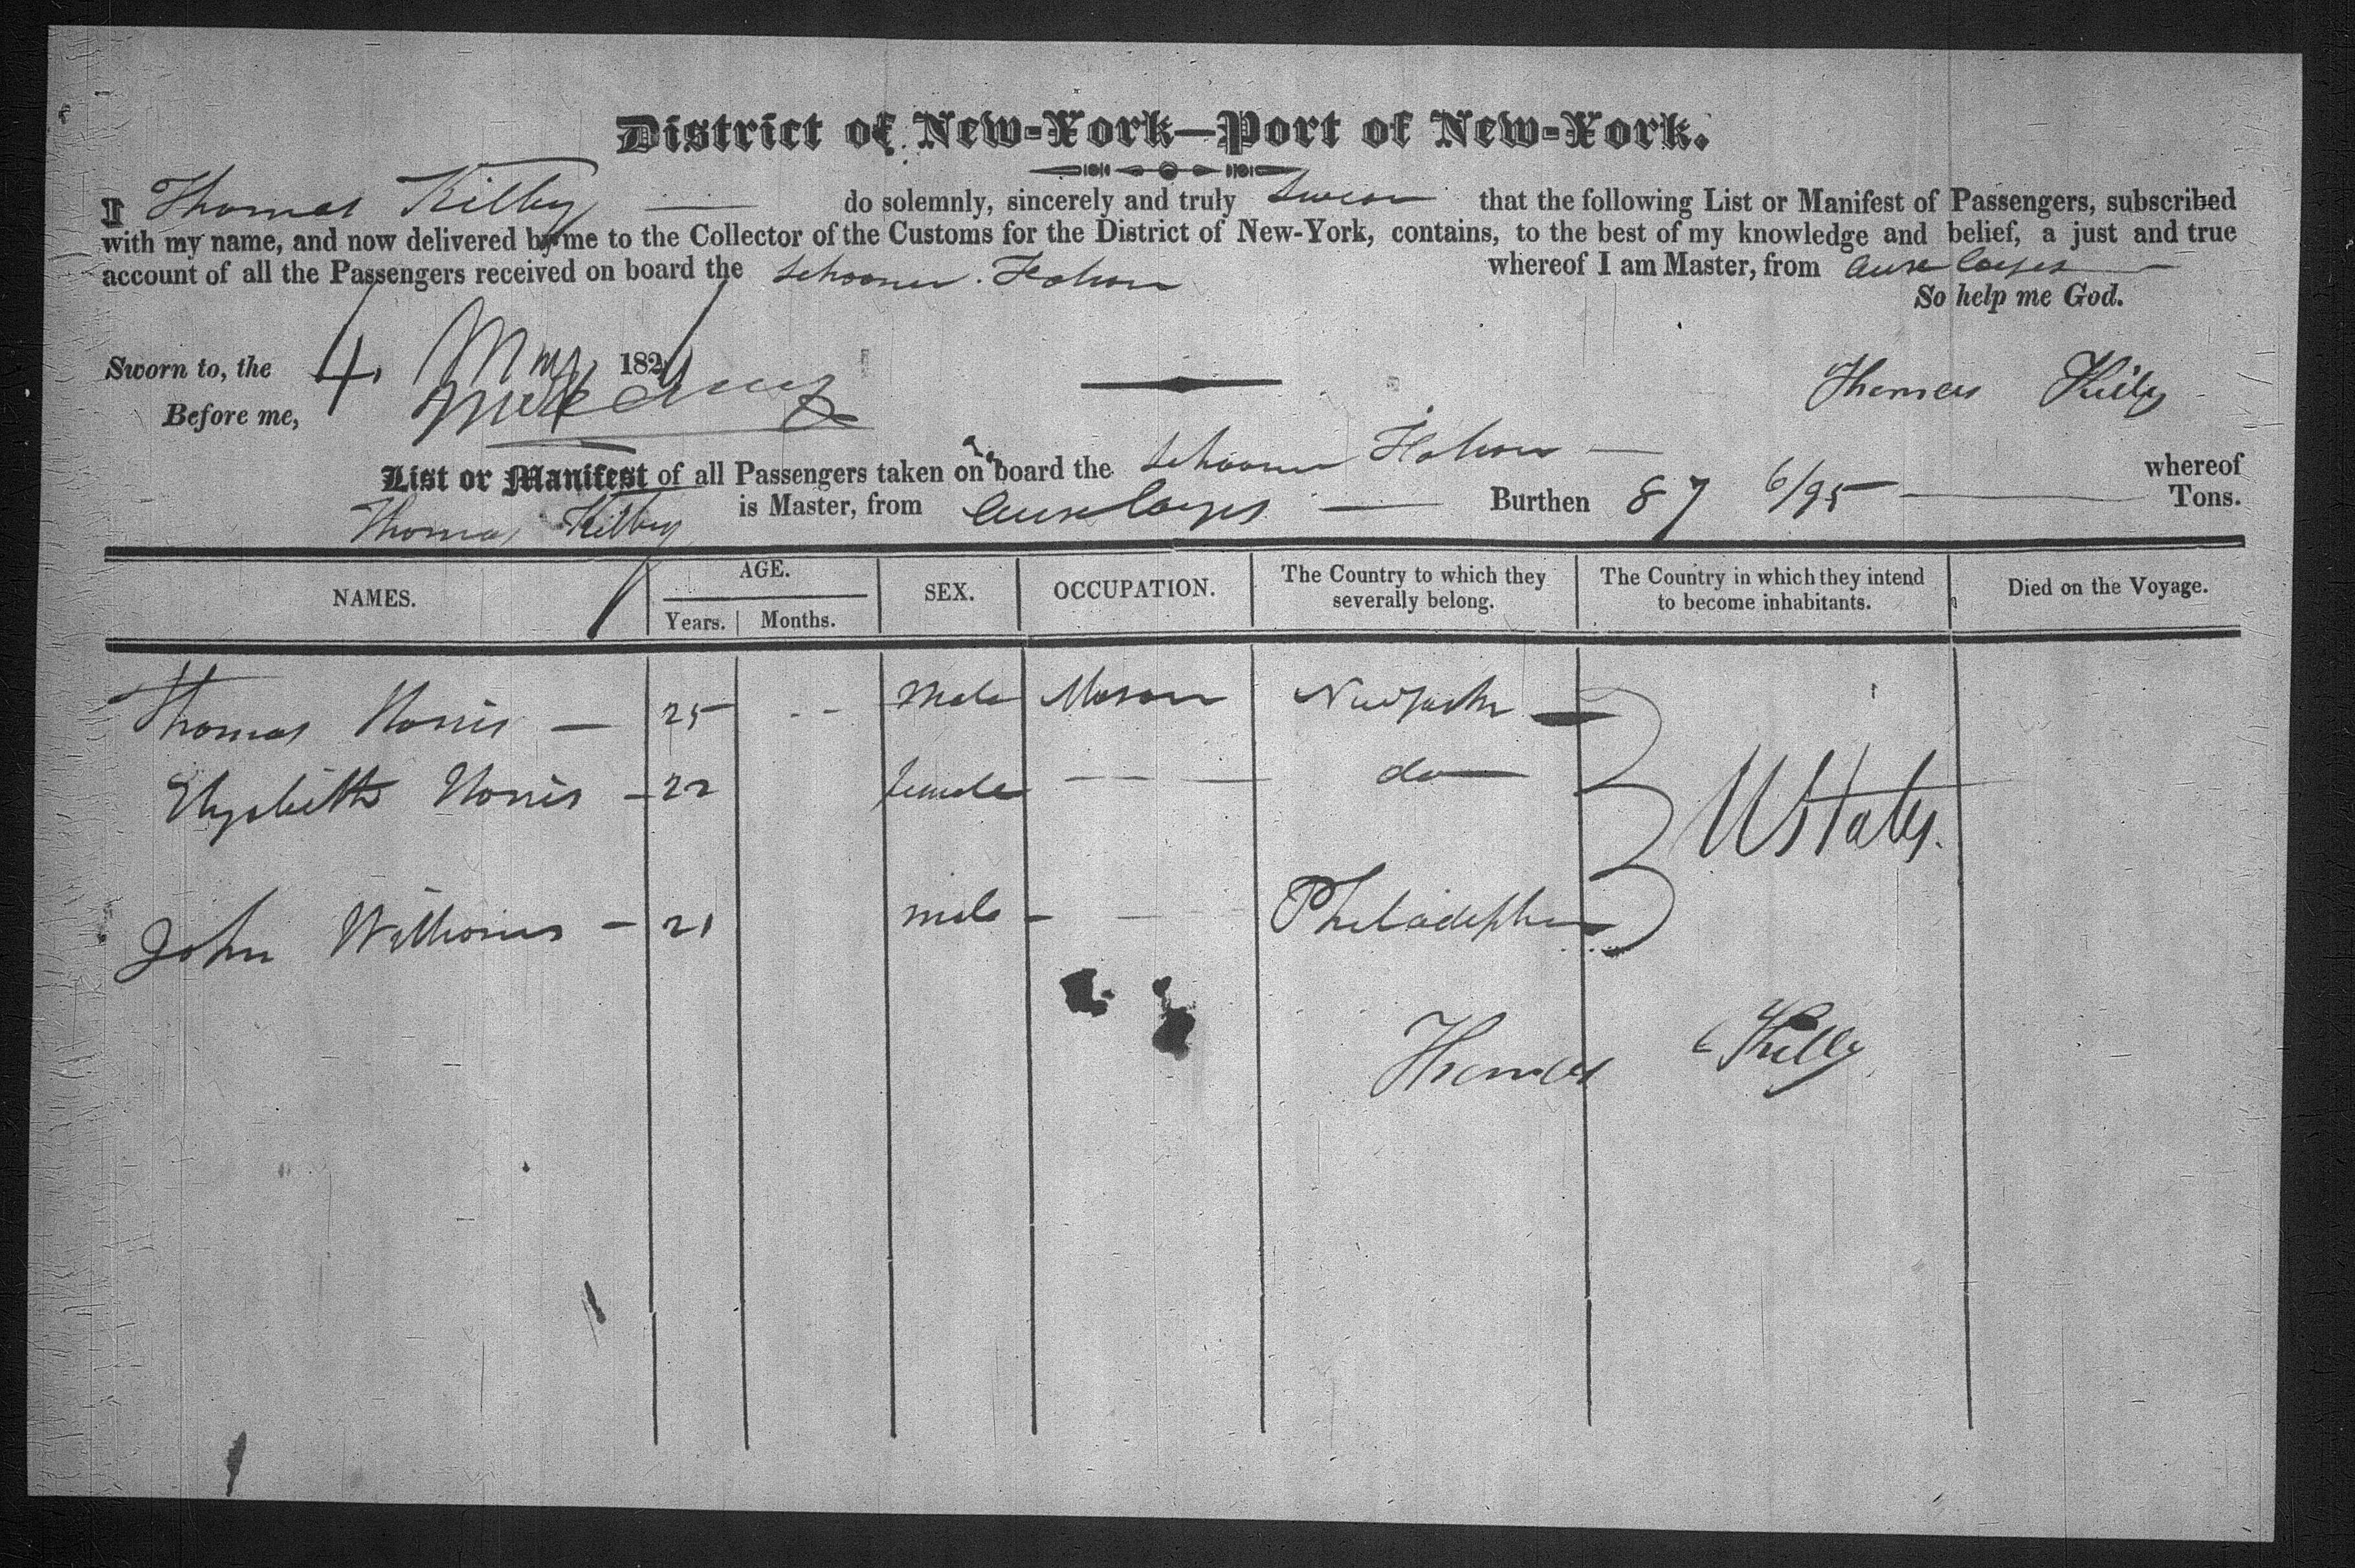 District of New-York—Port of New-York.
I Thomas Kilby — do solemnly, sincerely and truly Swear that the following List or Manifest of Passengers, subscribed
with my name, and now delivered by me to the Collector of the Customs for the District of New-York, contains, to the best of my knowledge and belief, a just and true
account of all the Passengers received on board the Schooner whereof I am Master, from Aux Cayes —
So help me God.
Sworn to, the 4. May 182
Before me,
Thomas Kilby
List or Manifest of all Passengers taken on board the Schooner — whereof
Thomas Kilby is Master, from Aux Cayes — Burthen 87 6/95 — Tons.
NAMES. AGE. Years. Months. SEX. OCCUPATION. The Country to which they severally belong. The Country in which they intend to become inhabitants. Died on the Voyage.
Thomas Norris — 25 - - Male Mason New York —
Elizabeth Norris — 22 female — — — do —
U States.
John Williams — 21 male - — - - Philadelphia
Thomas Kilby